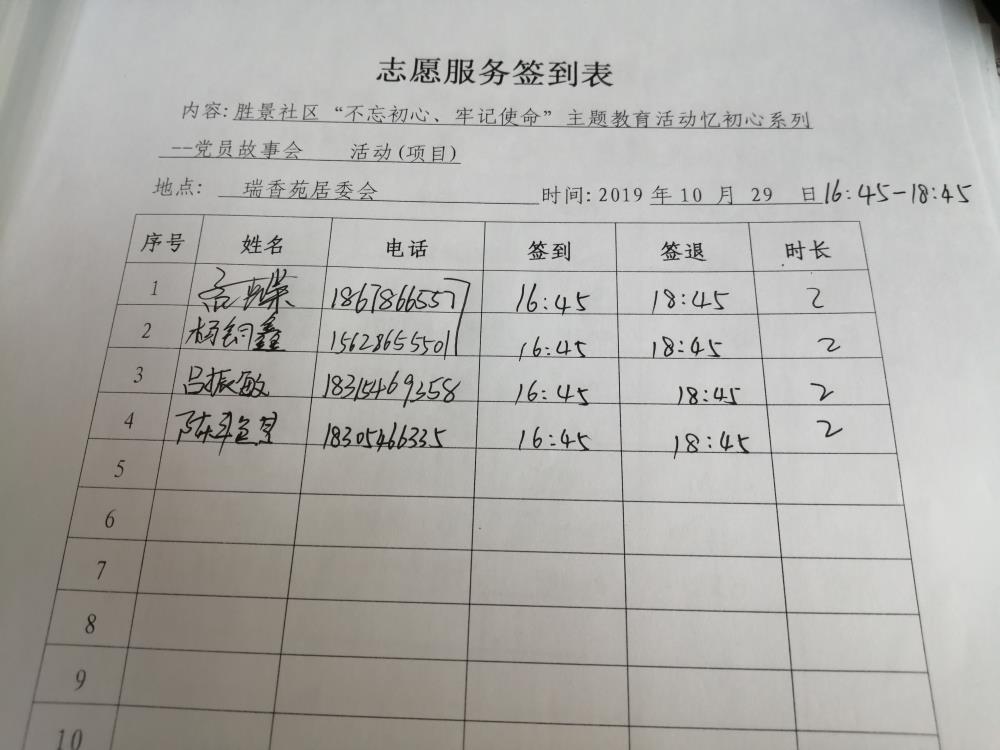 志愿服务签到表
内容:胜景社区“不忘初心、牢记使命”主题教育活动忆初心系列
--党员故事会 活动(项目)
地点: 瑞香苑居委会 时间:2019 年 10 月 29 日 16:45-18:45
序号 姓名 电话 签到 签退 时长
1 18678665577 16:45 18:45 2
2 杨钧鑫 15628655501 16:45 18:45 2
3 吕振敏 18315469358 16:45 18:45 2
4 18305466335 16:45 18:45 2
5
6
7
8
9
10